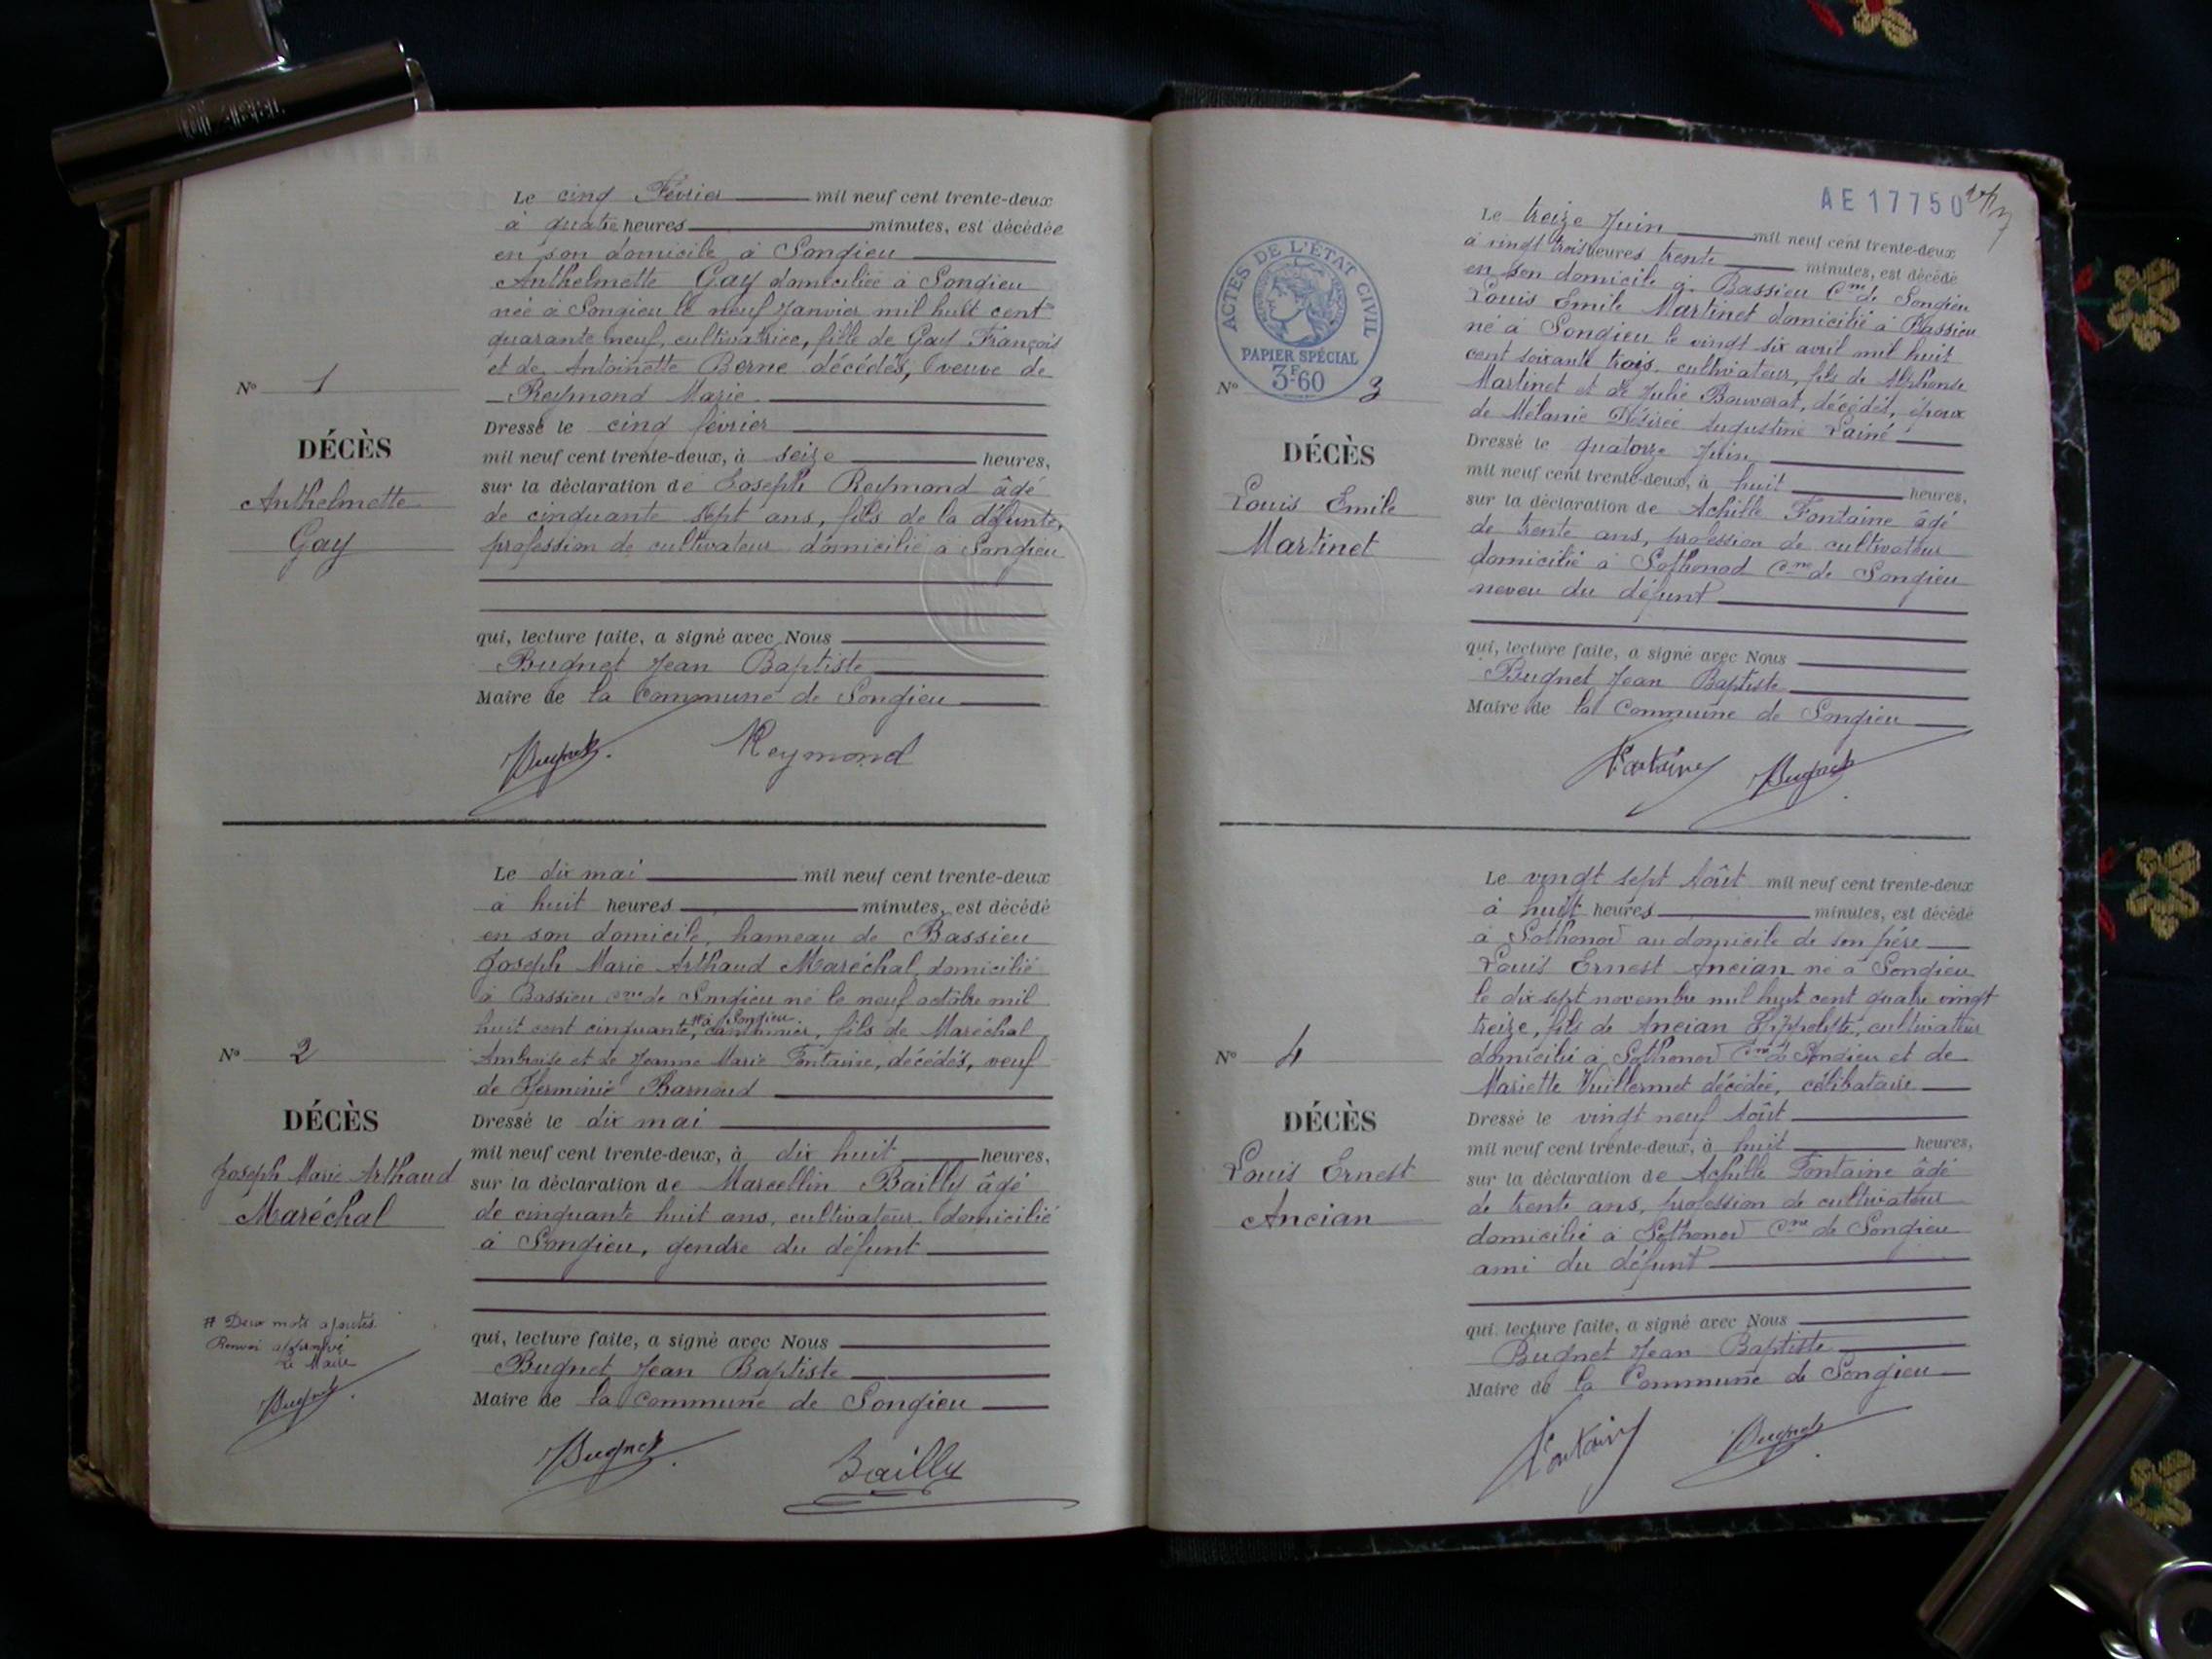 Le cinq Février mil neuf cent trente-deux
à quatre heures minutes, est décédée
en son domicile à Songieu
Anthelmette Gay domiciliée à Songieu
née à Songieu le neuf Janvier mil huit cent
quarante neuf, cultivatrice, fille de Gay François
et de Antoinette Berne décédés, veuve de
Reymond Marie
Dressé le cinq février
mil neuf cent trente-deux, à seize heures,
sur la déclaration de Joseph Reymond âgé
de cinquante sept ans, fils de la défunte,
profession de cultivateur domicilié à Songieu
qui, lecture faite, a signé avec Nous
Bugnet Jean Baptiste
Maire de la Commune de Songieu
Bugnet Reymond
N° 1
DÉCÈS
Anthelmette
Gay
Le dix mai mil neuf cent trente-deux
à huit heures minutes, est décédé
en son domicile, hameau de Bassieu
Joseph Marie Arthaud Maréchal domicilié
à Bassieu Cne de Songieu né le neuf octobre mil
huit cent cinquante, # à Songieu cantonnier, fils de Maréchal
Ambroise et de Jeanne Marie Fontaine, décédés, veuf
de Herminie Barnoud
Dressé le dix mai
mil neuf cent trente-deux, à dix huit heures,
sur la déclaration de Marcellin Bailly âgé
de cinquante huit ans, cultivateur domicilié
à Songieu, gendre du défunt
qui, lecture faite, a signé avec Nous
Bugnet Jean Baptiste
Maire de la Commune de Songieu
Bugnet Bailly
N° 2
DÉCÈS
Joseph Marie Arthaud
Maréchal
# Deux mots ajoutés.
Renvoi approuvé
Le Maire
Bugnet
AE 17750
ACTES DE L'ÉTAT CIVIL
PAPIER SPÉCIAL
3F.60
Le treize Juin mil neuf cent trente-deux
à vingt trois heures trente minutes, est décédé
en son domicile à Bassieu Cne de Songieu
Louis Emile Martinet domicilié à Bassieu
né à Songieu le vingt six avril mil huit
cent soixante trois, cultivateur, fils de Alphonse
Martinet et de Julie Bouverat, décédés, époux
de Mélanie Désirée Augustine Lainé
Dressé le quatorze Juin
mil neuf cent trente-deux, à huit heures,
sur la déclaration de Achille Fontaine âgé
de trente ans, profession de cultivateur
domicilié à Sothonod Cne de Songieu
neveu du défunt
qui, lecture faite, a signé avec Nous
Bugnet Jean Baptiste
Maire de la Commune de Songieu
Fontaine Bugnet
N° 3
DÉCÈS
Louis Emile
Martinet
Le vingt sept Août mil neuf cent trente-deux
à huit heures minutes, est décédé
à Sothonod au domicile de son père
Louis Ernest Ancian né à Songieu
le dix sept novembre mil huit cent quatre vingt
treize, fils de Ancian Hippolyte, cultivateur
domicilié à Sothonod Cne de Songieu et de
Mariette Vuillermet décédée, célibataire
Dressé le vingt neuf Août
mil neuf cent trente-deux, à huit heures,
sur la déclaration de Achille Fontaine âgé
de trente ans, profession de cultivateur
domicilié à Sothonod Cne de Songieu
ami du défunt
qui, lecture faite, a signé avec Nous
Bugnet Jean Baptiste
Maire de la Commune de Songieu
Fontaine Bugnet
N° 4
DÉCÈS
Louis Ernest
Ancian